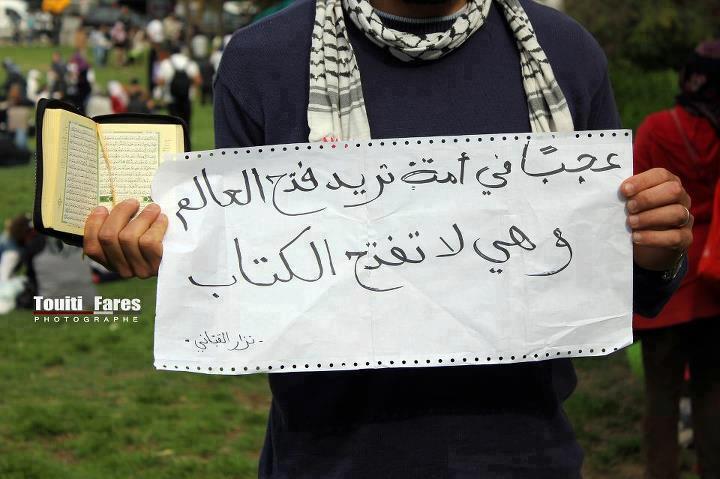 عجبًا في أمة تريد فتح العالم
و هي لا تفتح الكتاب
- نزار القباني -
Touiti_Fares
PHOTOGRAPHE